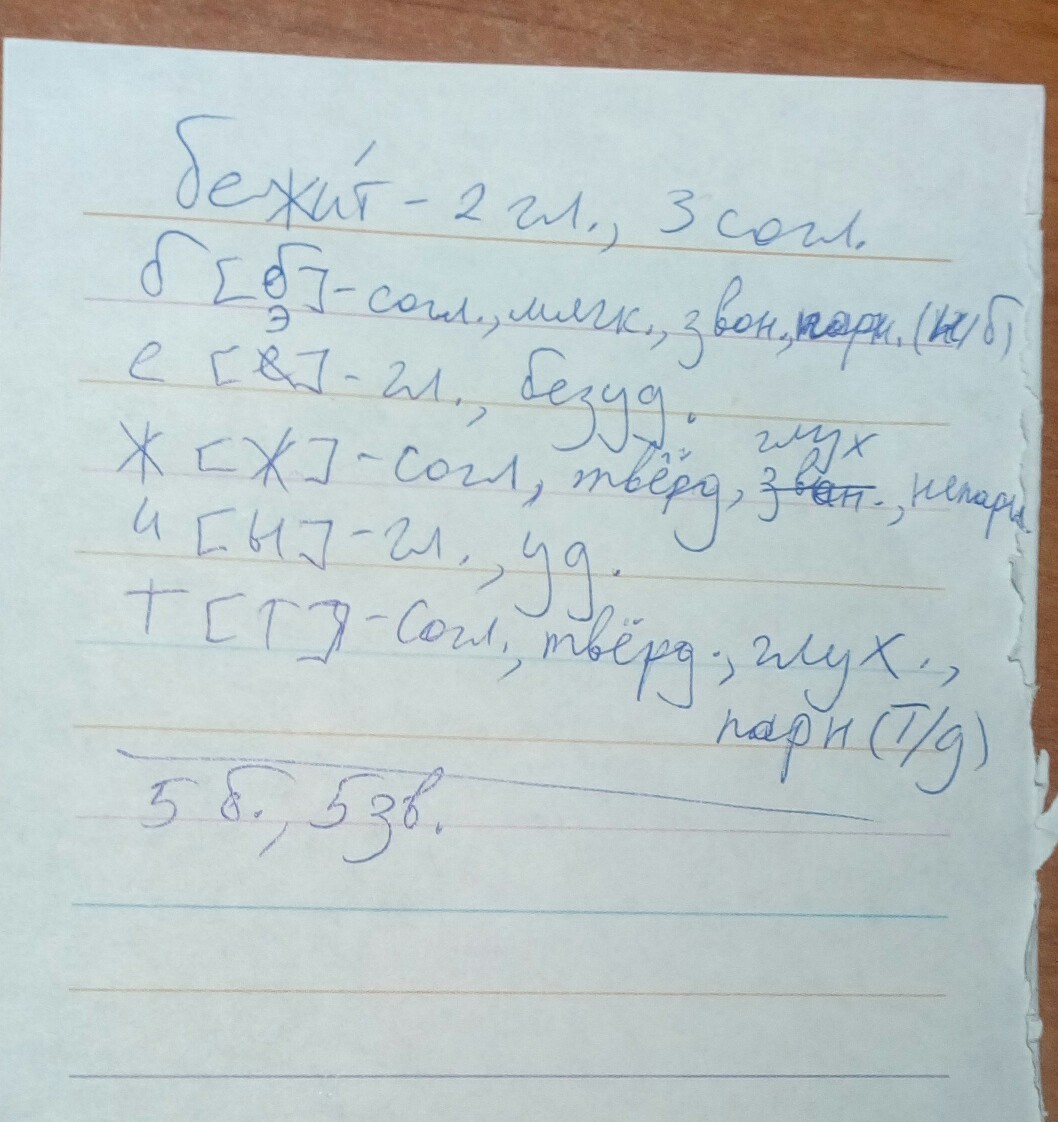 бежи́т - 2 гл., 3 согл.
б [б] - согл., мягк., звон., парн. (п/б)
е [э] - гл., безуд.
ж [ж] - согл, твёрд, глух, непарн.
и [ы] - гл., уд.
т [т] - согл., твёрд., глух.,
парн (т/д)
5 б., 5 зв.